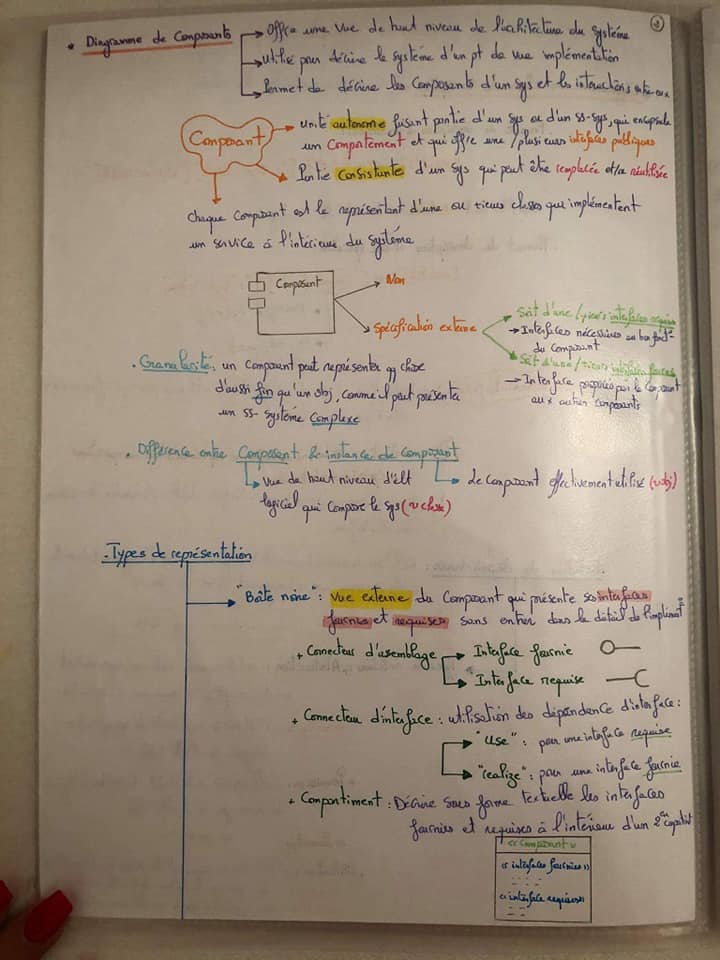 * Diagramme de Composants
→ Offre une vue de haut niveau de l'architecture du système
→ utilisé pour décrire le système d'un pt de vue implémentation
→ Permet de décrire les composants d'un sys et les interactions entre eux
Composant
→ unité autonome faisant partie d'un sys ou d'un ss-sys, qui encapsule
un Comportement et qui offre une / plusieurs interfaces publiques
→ Partie Consistante d'un sys qui peut être remplacée et/ou réutilisée
chaque composant est le représentant d'une ou +ieurs classes qui implémentent
un service à l'intérieur du système
Composant
Nom
Spécification externe
Soit d'une / +ieurs interfaces requises
→ Interfaces nécessaires au bon fonct°
du Composant
Soit d'une / +ieurs interfaces fournies
→ Interface proposée par le composant
aux autres composants
. Granularité: un composant peut représenter qq chose
d'aussi fin qu'un obj, comme il peut présenter
un ss-système complexe
. Différence entre Composant & instance de composant
→ vue de haut niveau d'élt
logiciel qui compose le sys (~ classe)
→ Le composant effectivement utilisé (~ obj)
. Types de représentation
→ "Boîte noire": vue externe du Composant qui présente ses interfaces
fournies et requises sans entrer dans le détail de l'implémat°
+ Connecteur d'assemblage
→ Interface fournie
→ Interface requise
+ Connecteur d'interface : utilisation des dépendance d'interface :
→ "use" : pour une interface requise
→ "realize" : pour une interface fournie
+ Compartiment : Décrire sous forme textuelle les interfaces
fournies et requises à l'intérieur d'un 2ème
<< Composant >>
<< interfaces fournies >>
<< interface requises >>